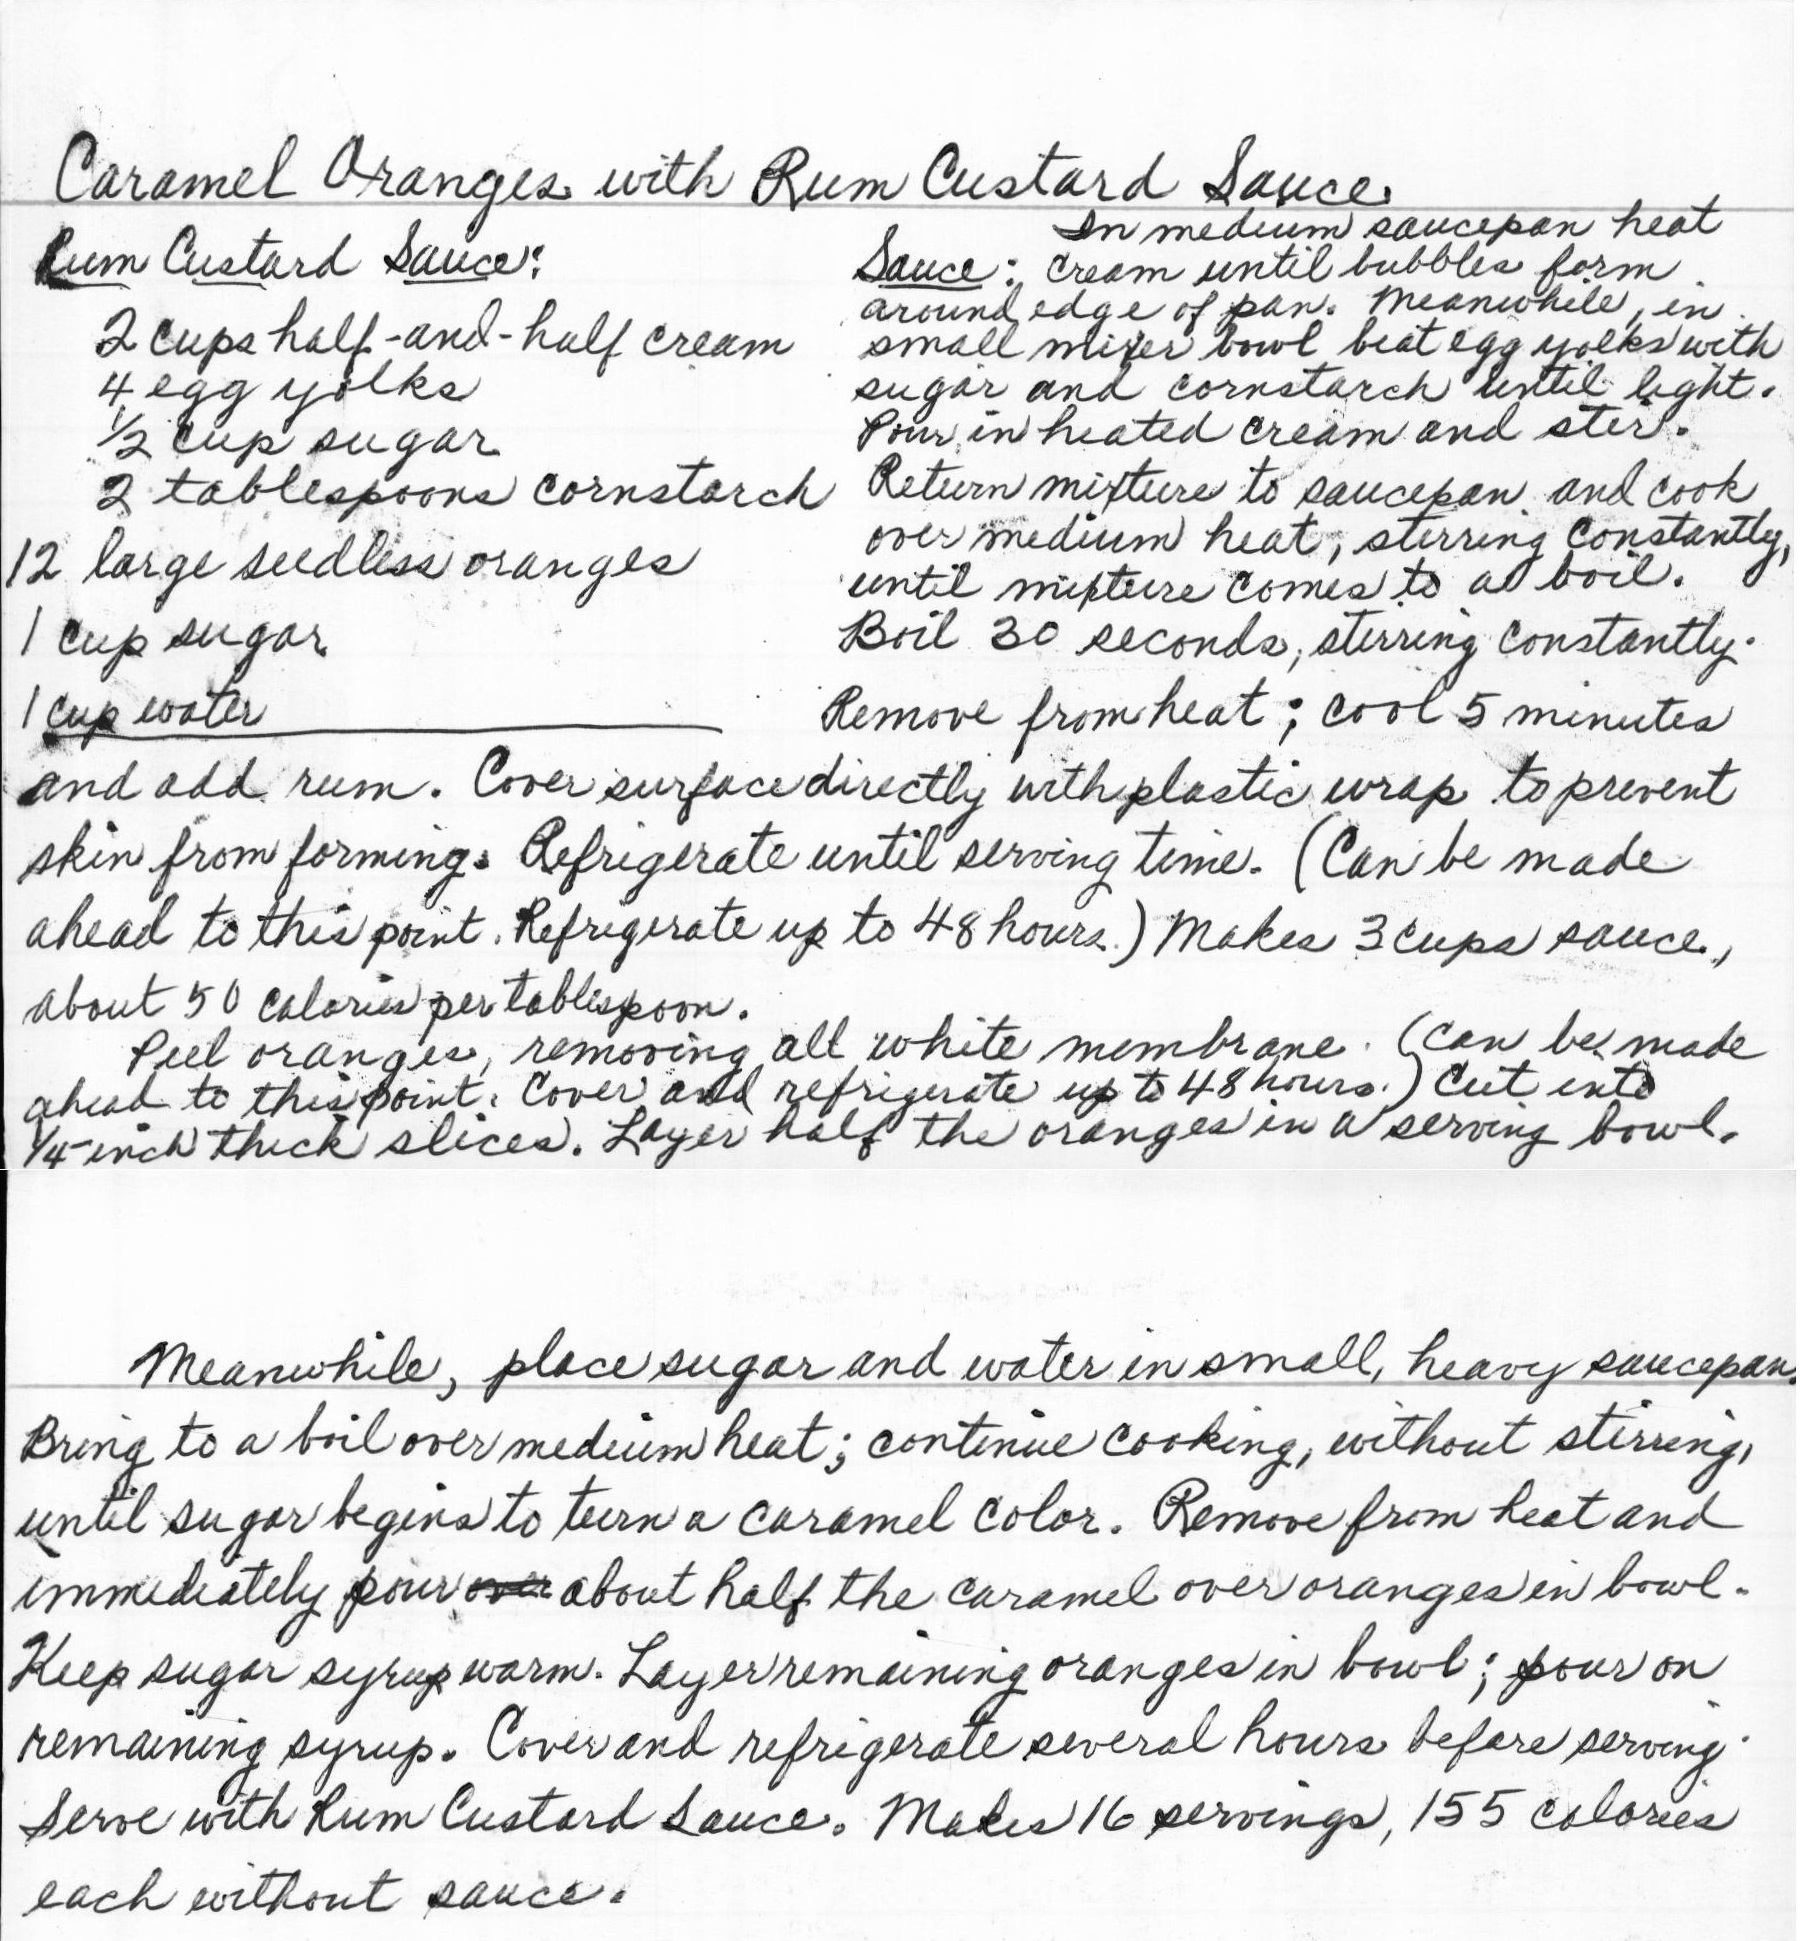 Caramel Oranges with Rum Custard Sauce
Rum Custard Sauce:
2 cups half-and-half cream
4 egg yolks
1/2 cup sugar
2 tablespoons cornstarch
12 large seedless oranges
1 cup sugar
1 cup water
In medium saucepan heat
Sauce: cream until bubbles form
around edge of pan. Meanwhile, in
small mixer bowl beat egg yolks with
sugar and cornstarch until light.
Pour in heated cream and stir.
Return mixture to saucepan and cook
over medium heat, stirring constantly,
until mixture comes to a boil.
Boil 30 seconds, stirring constantly.
Remove from heat; cool 5 minutes
and add rum. Cover surface directly with plastic wrap to prevent
skin from forming. Refrigerate until serving time. (Can be made
ahead to this point. Refrigerate up to 48 hours.) Makes 3 cups sauce,
about 50 calories per tablespoon.
Peel oranges, removing all white membrane. (Can be made
ahead to this point. Cover and refrigerate up to 48 hours.) Cut into
1/4-inch thick slices. Layer half the oranges in a serving bowl.
Meanwhile, place sugar and water in small, heavy saucepan.
Bring to a boil over medium heat; continue cooking, without stirring,
until sugar begins to turn a caramel color. Remove from heat and
immediately pour over about half the caramel over oranges in bowl.
Keep sugar syrup warm. Layer remaining oranges in bowl; pour on
remaining syrup. Cover and refrigerate several hours before serving.
Serve with Rum Custard Sauce. Makes 16 servings, 155 calories
each without sauce.